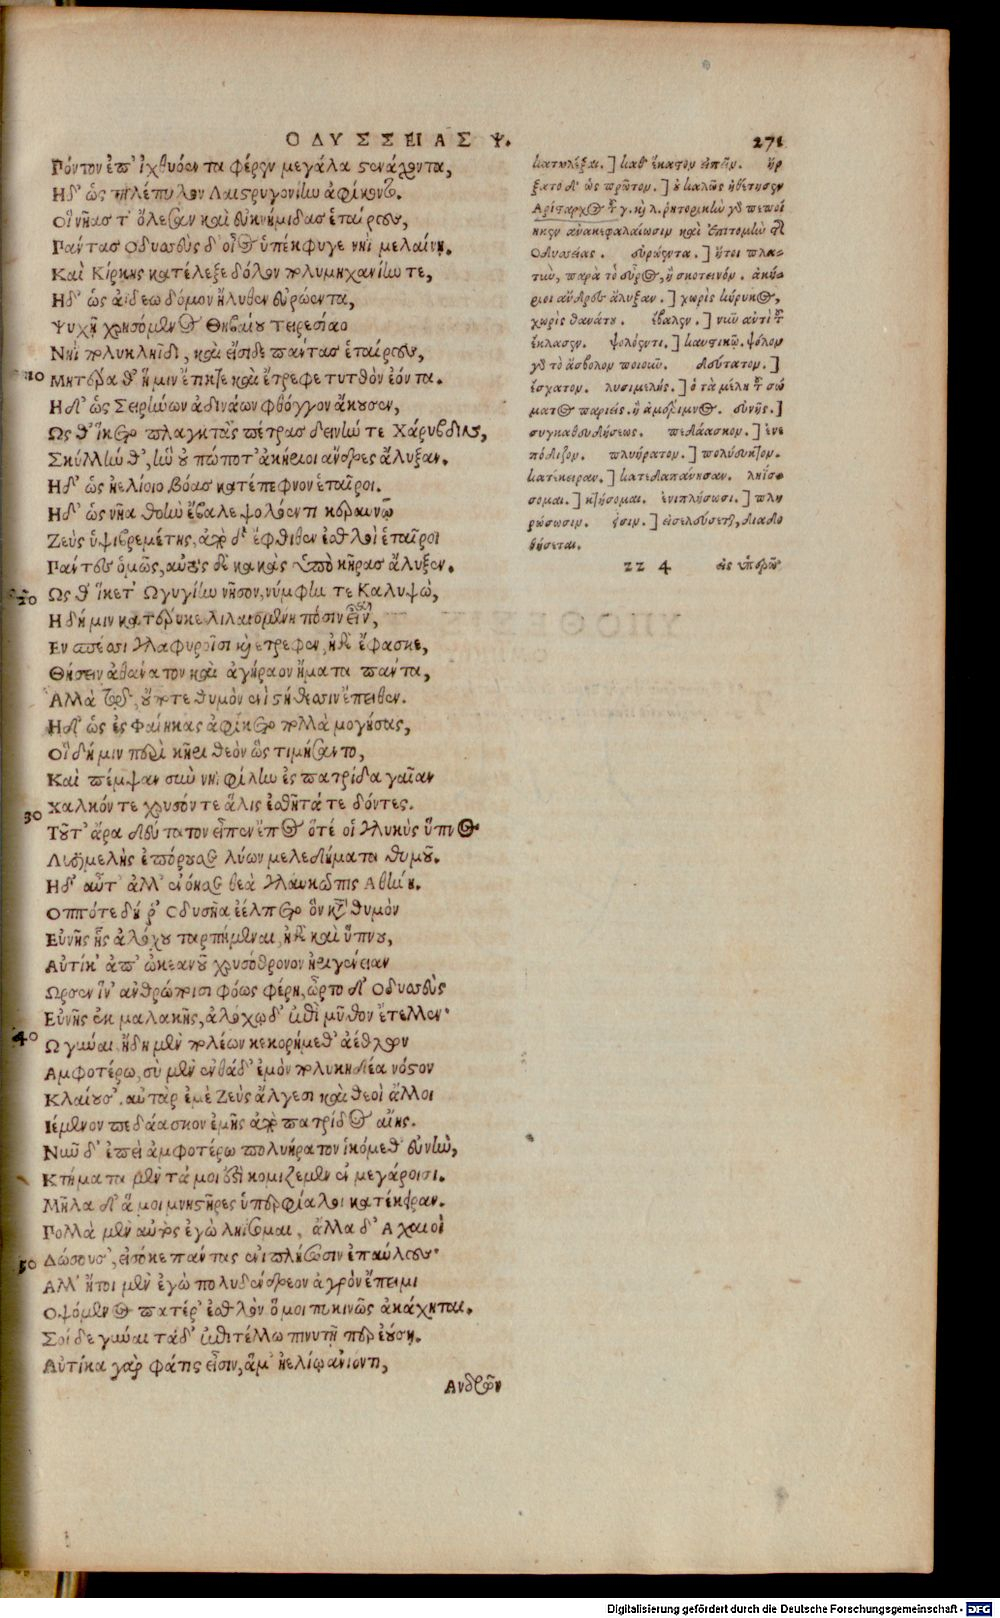 ΟΔΥΣΣΕΙΑΣ Ψ.
271
Πόντον ἐπ' ἰχθυόεντα φέρεν μεγάλα στενάχοντα,
Ηδ' ὡς τηλέπυλον Λαιστρυγονίην ἀφίκοντο.
Οἳ νῆας τ' ὄλεσαν καὶ ἐυκνήμιδας ἑταίρους,
Πάντας· Οδυσσεὺς δ' οἶος ὑπέκφυγε νηῒ μελαίνῃ.
Καὶ Κίρκης κατέλεξε δόλον πολυμηχανίην τε,
Ηδ' ὡς ἀΐδεω δόμον ἤλυθεν εὐρώεντα,
Ψυχῇ χρησόμενος Θηβαίου Τειρεσίαο
Νηῒ πολυκληῗδι, καὶ εἴσιδε πάντας ἑταίρους,
10
Μητέρα θ' ἥ μιν ἔτικτε καὶ ἔτρεφε τυτθὸν ἐόντα.
Ηδ' ὡς Σειρήνων ἀδινάων φθόγγον ἄκουσεν,
Ως θ' ἵκετο πλαγκτὰς πέτρας δεινήν τε Χάρυβδιν,
Σκύλλην θ', ἣν οὐ πώποτ' ἀκήριοι ἄνδρες ἄλυξαν.
Ηδ' ὡς ἠελίοιο βόας κατέπεφνον ἑταῖροι.
Ηδ' ὡς νῆα θοὴν ἔβαλε ψολόεντι κεραυνῷ
Ζεὺς ὑψιβρεμέτης, ἀπὸ δ' ἔφθιθεν ἐσθλοὶ ἑταῖροι
Πάντες ὁμῶς, αὐτὸς δὲ κακὰς ὑπὸ κῆρας ἄλυξεν.
20
Ως θ' ἵκετ' Ωγυγίην νῆσον, νύμφην τε Καλυψὼ,
Η δή μιν κατέρυκε λιλαιομένη πόσιν εἶναι,
Εν σπέσσι γλαφυροῖσι καὶ ἔτρεφεν, ἠδὲ ἔφασκε,
Θήσειν ἀθάνατον καὶ ἀγήραον ἤματα πάντα,
Αλλὰ τοῦ, οὔποτε θυμὸν ἐνὶ στήθεσσιν ἔπειθεν.
Ηδ' ὡς ἐς Φαίηκας ἀφίκετο πολλὰ μογήσας,
Οἳ δή μιν περὶ κῆρι θεὸν ὣς τιμήσαντο,
Καὶ πέμψαν σὺν νηῒ φίλην ἐς πατρίδα γαῖαν
Χαλκόν τε χρυσόν τε ἅλις ἐσθῆτά τε δόντες.
30
Τοῦτ' ἄρα δεύτατον εἶπεν ἔπος ὅτέ οἱ γλυκὺς ὕπνος
Λυσιμελὴς ἐπόρουσε λύων μελεδήματα θυμοῦ.
Ηδ' αὖτ' ἄλλ' ἐνόησε θεὰ γλαυκῶπις Αθήνη.
Οππότε δή ῥ' Οδυσῆα ἐέλπετο ὃν κατὰ θυμὸν
Εὐνῆς ἧς ἀλόχου ταρπήμεναι, ἠδὲ καὶ ὕπνου,
Αὐτίκ' ἀπ' ὠκεανοῦ χρυσόθρονον ἠριγένειαν
Ωρσεν ἵν' ἀνθρώποισι φόως φέρῃ, ὦρτο δ' Οδυσσεὺς
Εὐνῆς ἐκ μαλακῆς, ἀλόχῳ δ' ἐπὶ μῦθον ἔτελλεν·
40
Ω γύναι ἤδη μὲν πολέων κεκορήμεθ' ἀέθλων
Αμφοτέρω, σὺ μὲν ἐνθάδ' ἐμὸν πολυκηδέα νόστον
Κλαίουσ', αὐτὰρ ἐμὲ Ζεὺς ἄλγεσι καὶ θεοὶ ἄλλοι
Ιέμενον πεδάασκον ἐμῆς ἀπὸ πατρίδος αἴης.
Νῦν δ' ἐπεὶ ἀμφοτέρω πολυήρατον ἱκόμεθ' εὐνὴν,
Κτήματα μὲν τά μοι ἐστὶ κομιζέμεν ἐν μεγάροισι.
Μῆλα δ' ἅ μοι μνηστῆρες ὑπερφίαλοι κατέκειραν.
Πολλὰ μὲν αὐτὸς ἐγὼ ληΐσομαι, ἄλλα δ' Αχαιοὶ
50
Δώσουσ', εἰσόκε πάντας ἐνιπλήσωσιν ἐπαύλους·
Αλλ' ἤτοι μὲν ἐγὼ πολυδένδρεον ἀγρὸν ἔπειμι
Οψόμενος πατέρ' ἐσθλὸν ὅ μοι πυκινῶς ἀκάχηται.
Σοὶ δὲ γύναι τάδ' ἐπιτέλλω πινυτῇ περ ἐούσῃ.
Αὐτίκα γὰρ φάτις εἶσιν, ἅμ' ἠελίῳ ἀνιόντι,
Ανδρῶν
κατέλεξαι.] καθ' ἕκαστον εἰπεῖν. ἤρ
ξατο δ' ὡς πρῶτον.] οὐ καλῶς ἠθέτησεν
Αρίσταρχος τ γ. καὶ λ. ῥητορικὴν γὰρ πεποί
ηκεν ἀνακεφαλαίωσιν καὶ ἐπιτομὴν τῆς
Οδυσσείας. εὐρώεντα.] ἤτοι πλα-
τὺν, παρὰ τὸ εὖρος, ἢ σκοτεινόν. ἀκή-
ριοι ἄνδρες ἄλυξαν.] χωρὶς κῆρυκος,
χωρὶς θανάτου. ἔβαλεν.] νῦν ἀντὶ τοῦ
ἔκλασεν. ψολόεντι.] καυστικῷ. ψόλον
γὰρ τὸ ἄσβολον ποιοῦν. δεύτατον.]
ἔσχατον. λυσιμελής.] ὁ τὰ μέλη τοῦ σώ
ματος παριεὶς. ἢ ἀμέριμνος. εὐνῆς.]
συγκαθευδήσεως. πεδάασκον.] ἐνε
πόδιζον. πολυήρατον.] πολύευκτον.
κατέκειραν.] κατεδαπάνησαν. ληΐσ-
σομαι.] κτήσομαι. ἐνιπλήσωσι.] πλη
ρώσωσιν. εἶσιν.] εἰσελεύσεται, διαδο
θήσεται.
22 4 εἰς ὑπερῷ
Digitalisierung gefördert durch die Deutsche Forschungsgemeinschaft - DFG